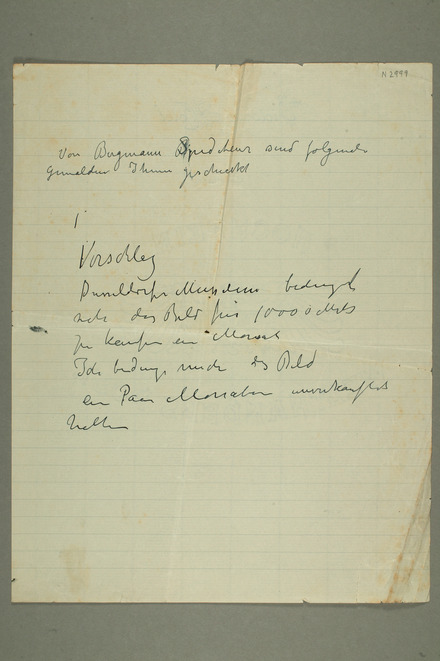 N 2999
Von Bergmann sind folgende
Gemälden Ihnen geschickt
1
Vorschlag
Dusseldorfer Museum bedingt
sich das Bild für 10000 Mk
zu kaufen ein Monat
Ich bedinge mich das Bild
ein Paar Monaten unverkauft
halten